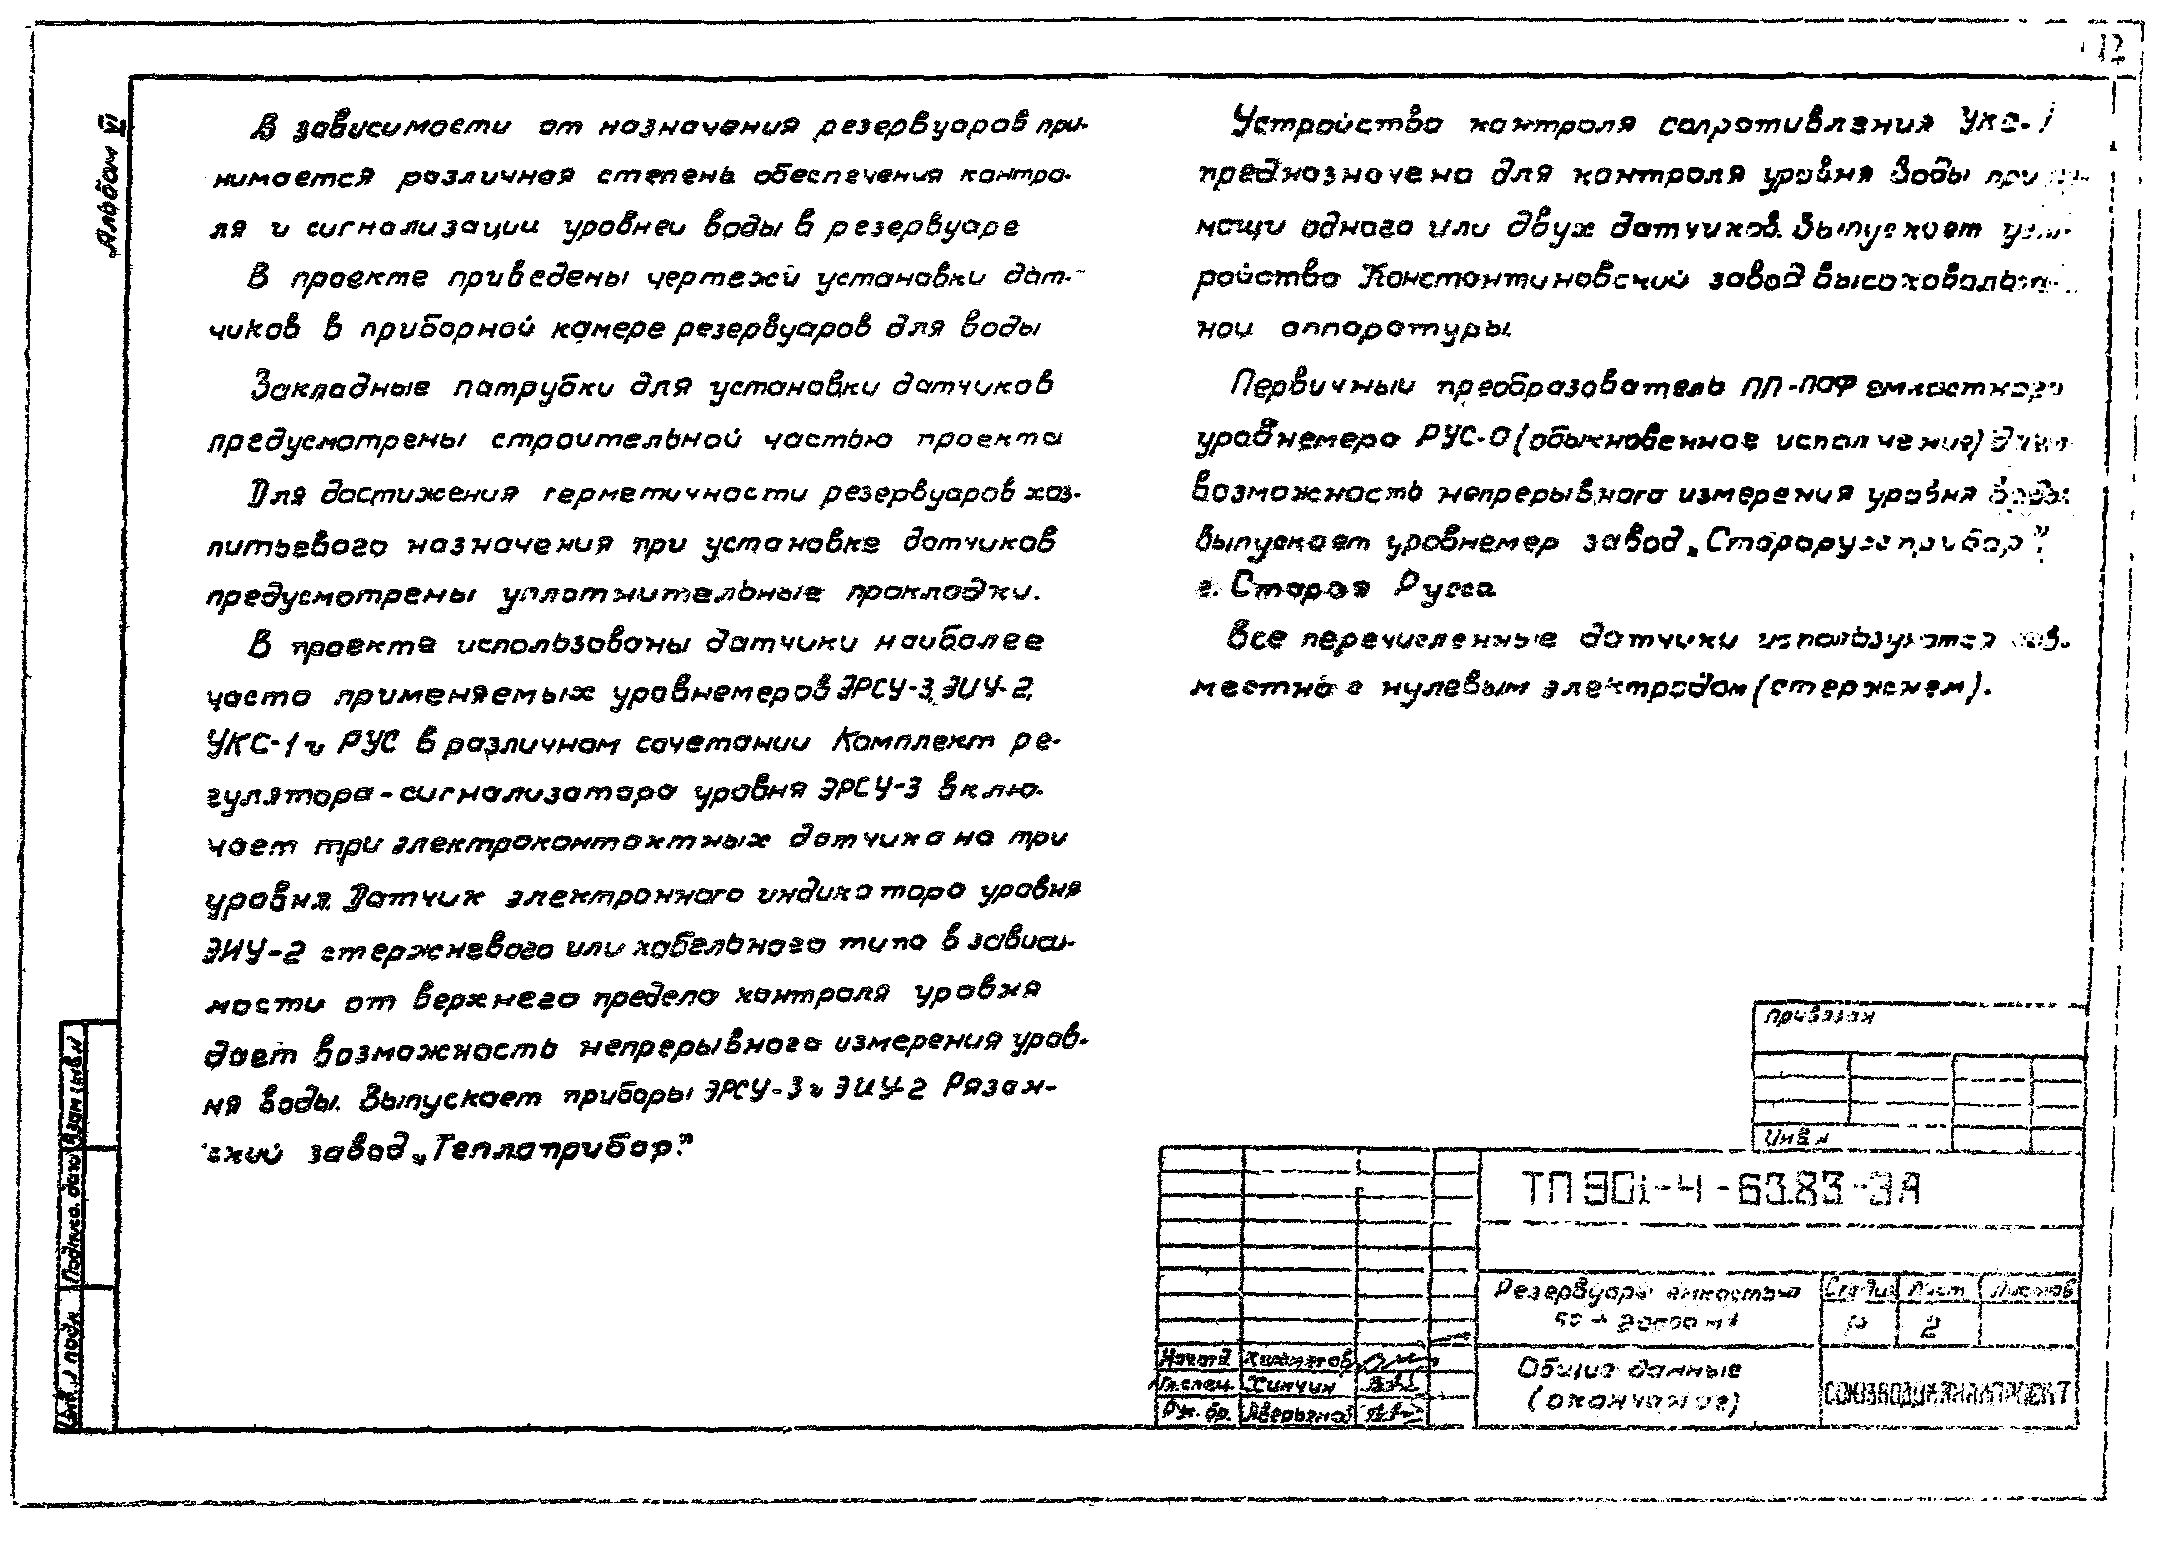 12
Альбом VI
В зависимости от назначения резервуаров при-
нимается различная степень обеспечения контро-
ля и сигнализации уровней воды в резервуаре
В проекте приведены чертежи установки дат-
чиков в приборной камере резервуаров для воды
Закладные патрубки для установки датчиков
предусмотрены строительной частью проекта
Для достижения герметичности резервуаров хоз.
питьевого назначения при установке датчиков
предусмотрены уплотнительные прокладки.
В проекте использованы датчики наиболее
часто применяемых уровнемеров ЭРСУ-3, ЭИУ-2,
УКС-1 и РУС в различном сочетании Комплект ре-
гулятора-сигнализатора уровня ЭРСУ-3 вклю-
чает три электроконтактных датчика на три
уровня. Датчик электронного индикатора уровня
ЭИУ-2 стержневого или кабельного типа в зависи-
мости от верхнего предела контроля уровня
дает возможность непрерывного измерения уров-
ня воды. Выпускает приборы ЭРСУ-3 и ЭИУ-2 Рязан-
ский завод „Теплоприбор."
Устройство контроля сопротивления УКС-1
предназначено для контроля уровня воды при по-
мощи одного или двух датчиков. Выпускает уст-
ройство Константиновский завод высоковольт-
ной аппаратуры.
Первичный преобразователь ПП-ПОФ емкостного
уровнемера РУС-О (обыкновенное исполнение) дает
возможность непрерывного измерения уровня воды
Выпускает уровнемер завод „Старорусприбор"
г. Старая Русса
Все перечисленные датчики используются сов-
местно с нулевым электродом (стержнем).
Привязан
Инв. №
ТП 901-4-63.83-ЭА
Резервуары емкостью
50 ÷ 20000 м³
Стадия Лист Листов
Р 2
Общие данные
(окончание)
СОЮЗВОДОКАНАЛПРОЕКТ
Нач отд
Гл. спец. Хинчин
Рук. бр.
Инв. № подл. Подпись дата Взам инв. №